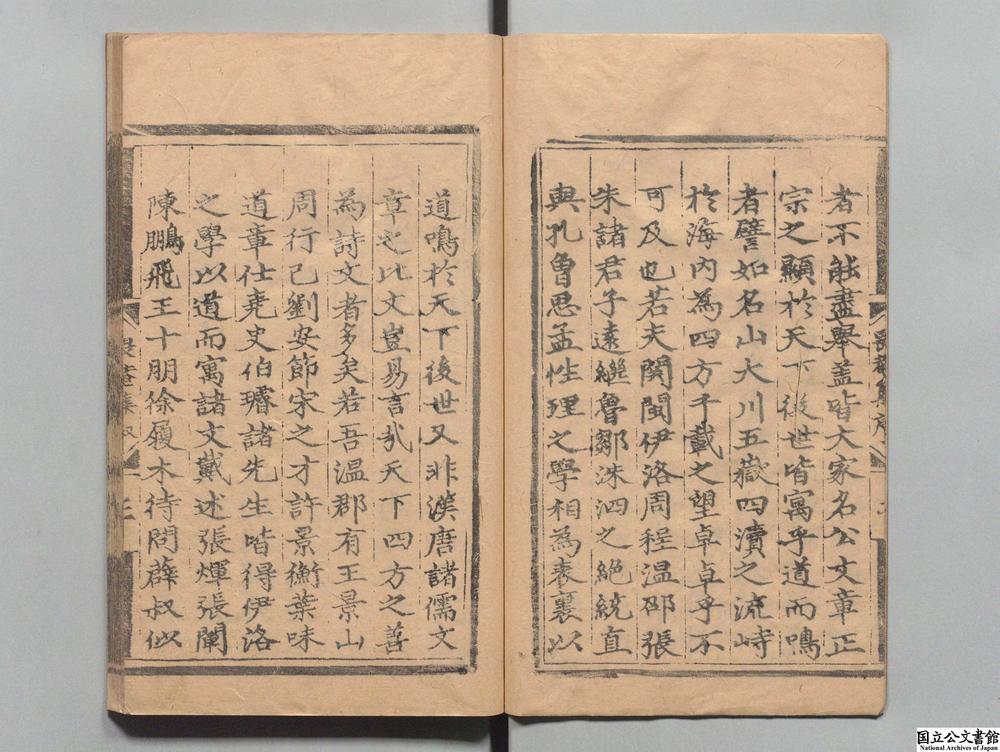 者不能盡舉盖皆大家名公文章正
宗之顯於天下後世皆寓乎道而鳴
者譬如名山大川五嶽四瀆之流峙
於海内為四方千載之望卓卓乎不
可及也若夫関閩伊洛周程温邵張
朱諸君子遠繼魯鄒洙泗之絶統直
與孔曾思孟性理之學相為表裏以
道鳴於天下後世又非漢唐諸儒文
章之比文豈易言㢤天下四方之善
為詩文者多矣若吾温郡有王景山
周行己劉安節宋之才許景衡葉味
道章仕尭史伯璿諸先生皆得伊洛
之學以道而寓諸文戴述張煇張闡
陳鵬飛王十朋徐履木待問薛叔似
国立公文書館
National Archives of Japan